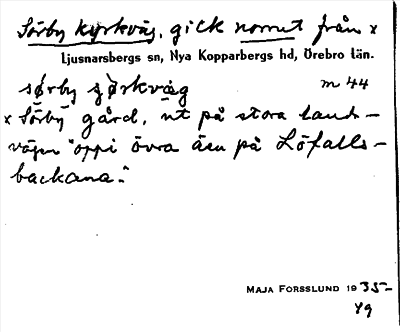 Sörby kyrkväg, gick norrut från x
Ljusnarsbergs sn, Nya Kopparbergs hd, Örebro län.
sø̀rby şø̀rkvæg m 44
x Sörby gård, ut på stora lands-
vägen "oppi övra åsn på Löfalls-
backana."
MAJA FORSSLUND 1935-
49